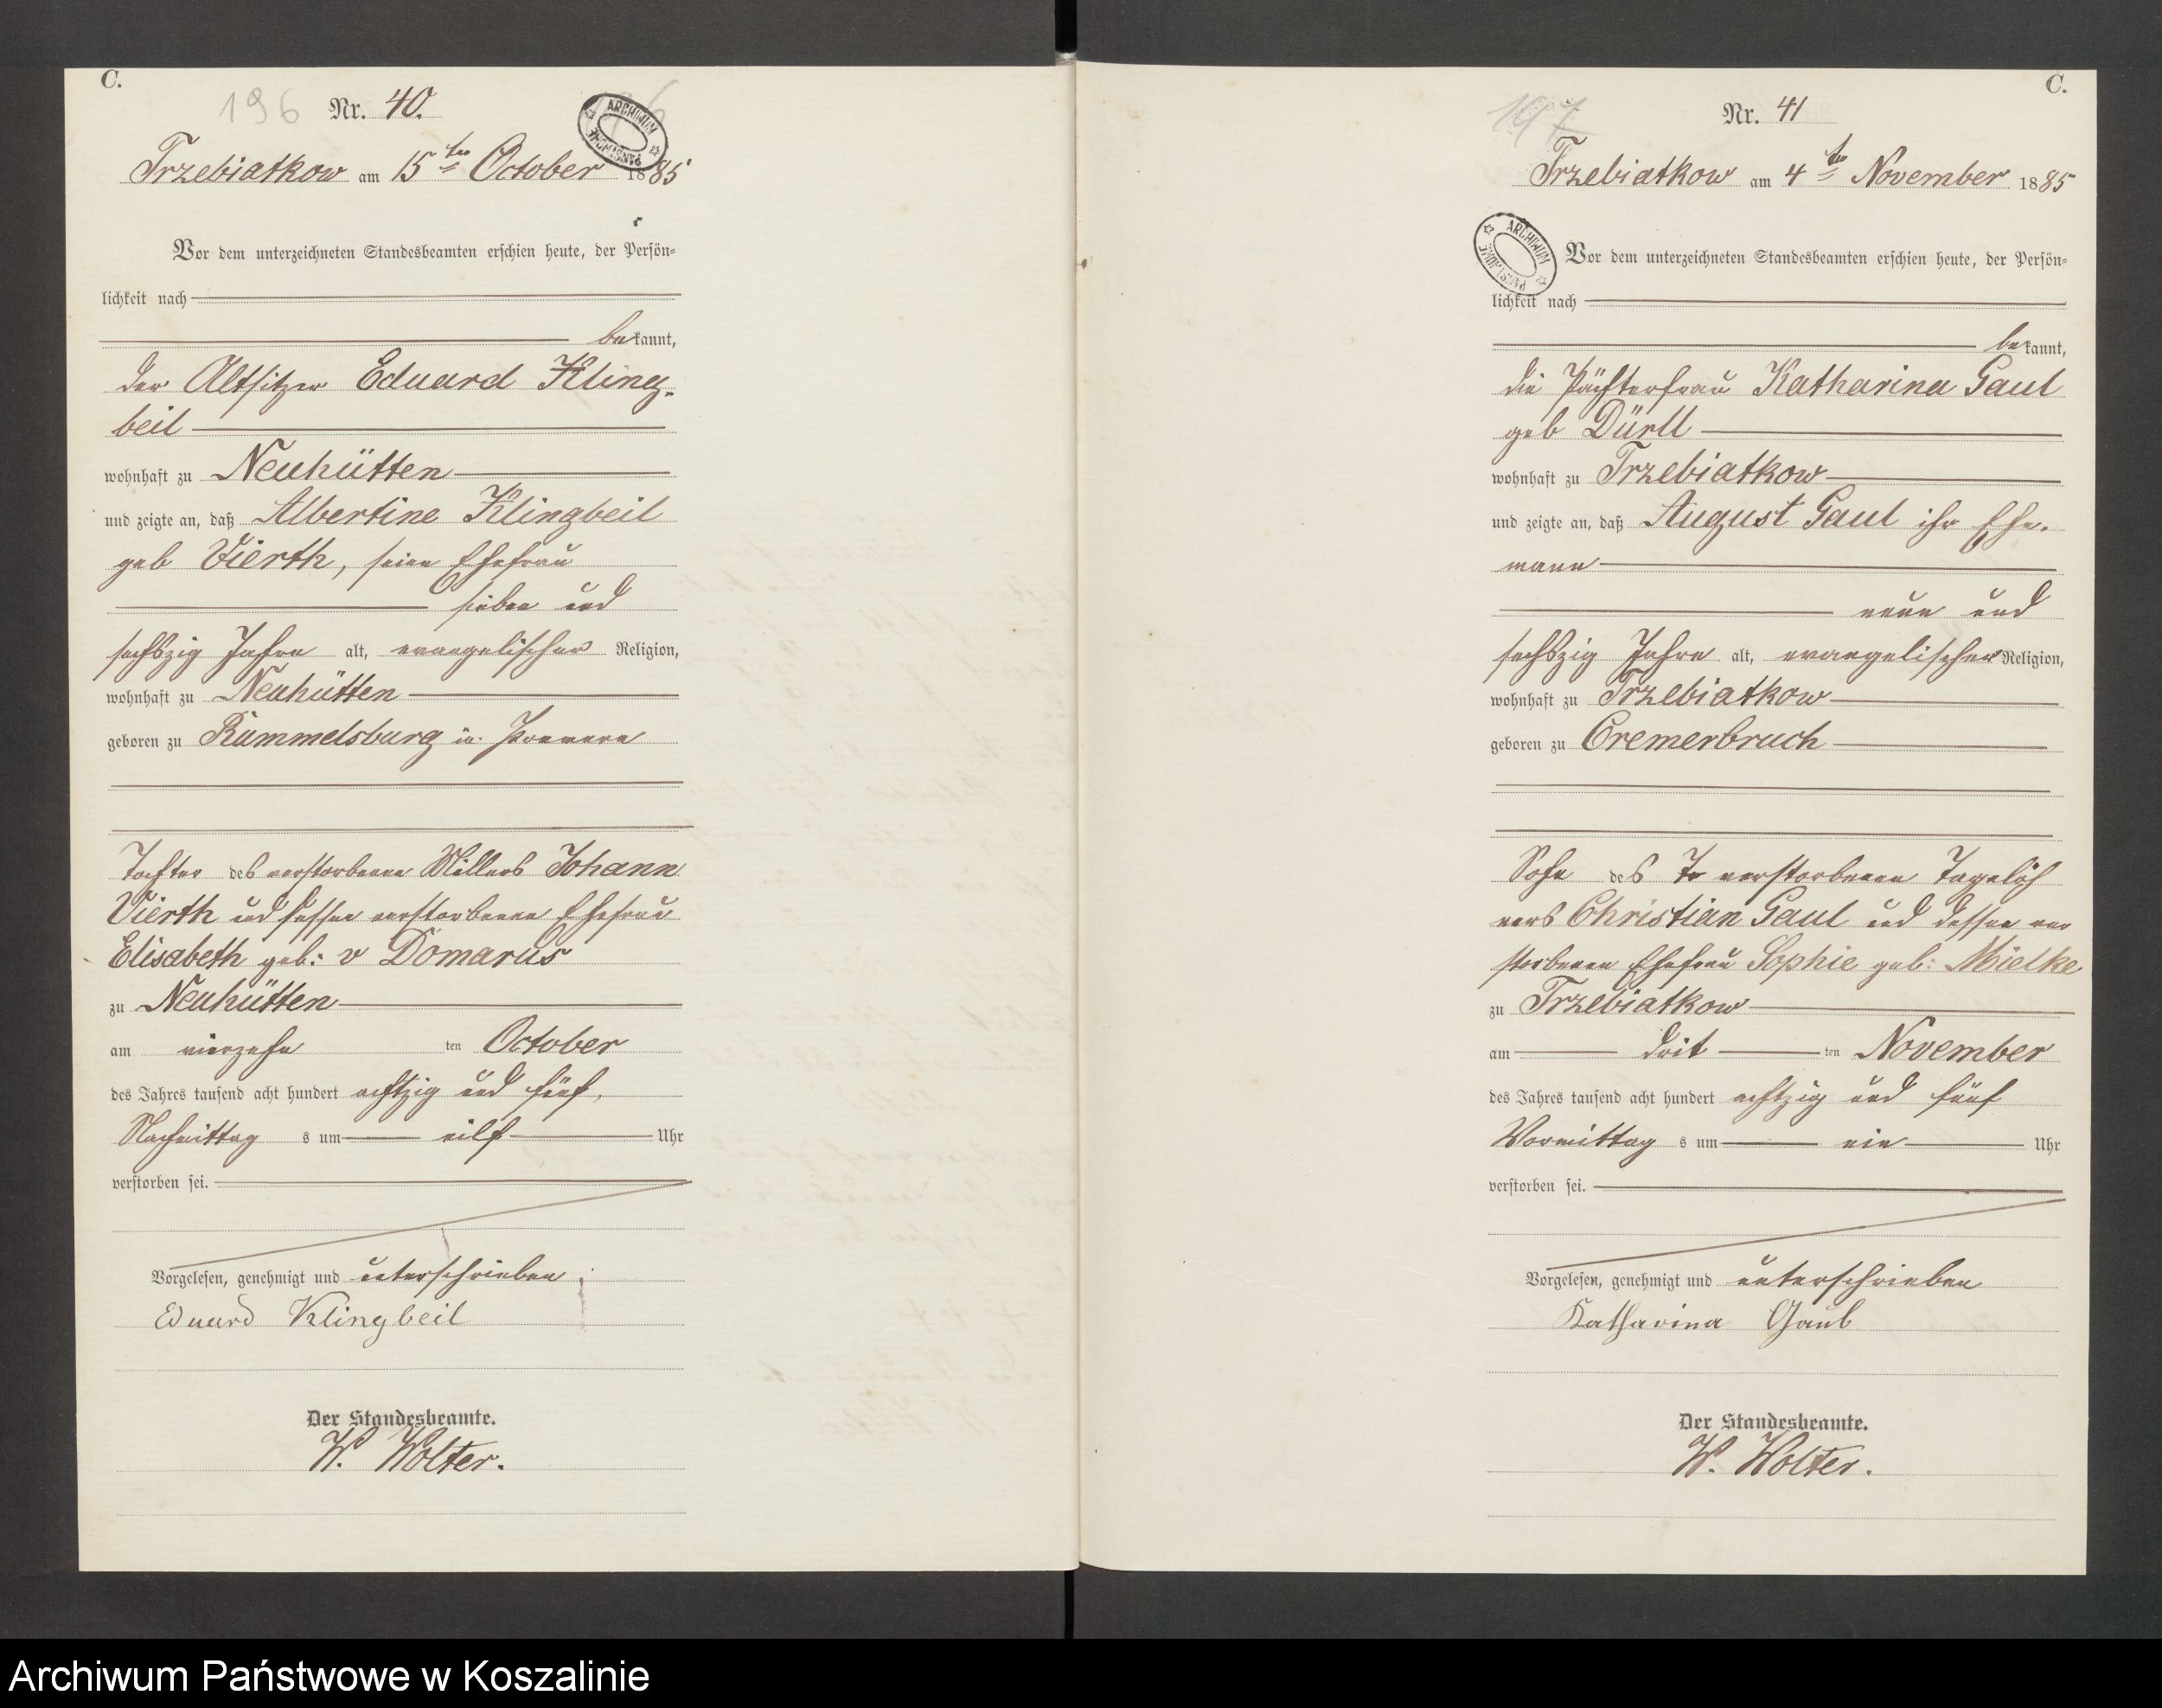 C.
196 Nr. 40.
ARCHIWUM PAŃSTWOWE
Trzebiatkow am 15ten October 1885
Vor dem unterzeichneten Standesbeamten erschien heute, der Persön-
lichkeit nach
bekannt,
der Altsitzer Eduard Kling-
beil
wohnhaft zu Neuhütten
und zeigte an, daß Albertine Klingbeil
geb Vierth, seine Ehefrau
sieben und
sechszig Jahre alt, evangelischer Religion,
wohnhaft zu Neuhütten
geboren zu Rummelsburg in Pommern
Tochter des verstorbenen Müllers Johann
Vierth und dessen verstorbenen Ehefrau
Elisabeth geb: v Domarus
zu Neuhütten
am vierzehn ten October
des Jahres tausend acht hundert achtzig und fünf,
Nachmittag s um eilf Uhr
verstorben sei.
Vorgelesen, genehmigt und unterschrieben
Eduard Klingbeil
Der Standesbeamte.
W. Wolter.
C.
197 Nr. 41
Trzebiatkow am 4ten November 1885
ARCHIWUM PAŃSTWOWE
Vor dem unterzeichneten Standesbeamten erschien heute, der Persön-
lichkeit nach
bekannt,
die Pächterfrau Katharina Gaul
geb Dürll
wohnhaft zu Trzebiatkow
und zeigte an, daß August Gaul ihr Ehe-
mann
neun und
sechszig Jahre alt, evangelischer Religion,
wohnhaft zu Trzebiatkow
geboren zu Cremerbruch
Sohn des verstorbenen Tagelöh
ners Christian Gaul und dessen ver
storbenen Ehefrau Sophie geb: Mielke
zu Trzebiatkow
am drit ten November
des Jahres tausend acht hundert achtzig und fünf
Vormittag s um ein Uhr
verstorben sei.
Vorgelesen, genehmigt und unterschrieben
Katharina Gaul
Der Standesbeamte.
W. Wolter.
Archiwum Państwowe w Koszalinie